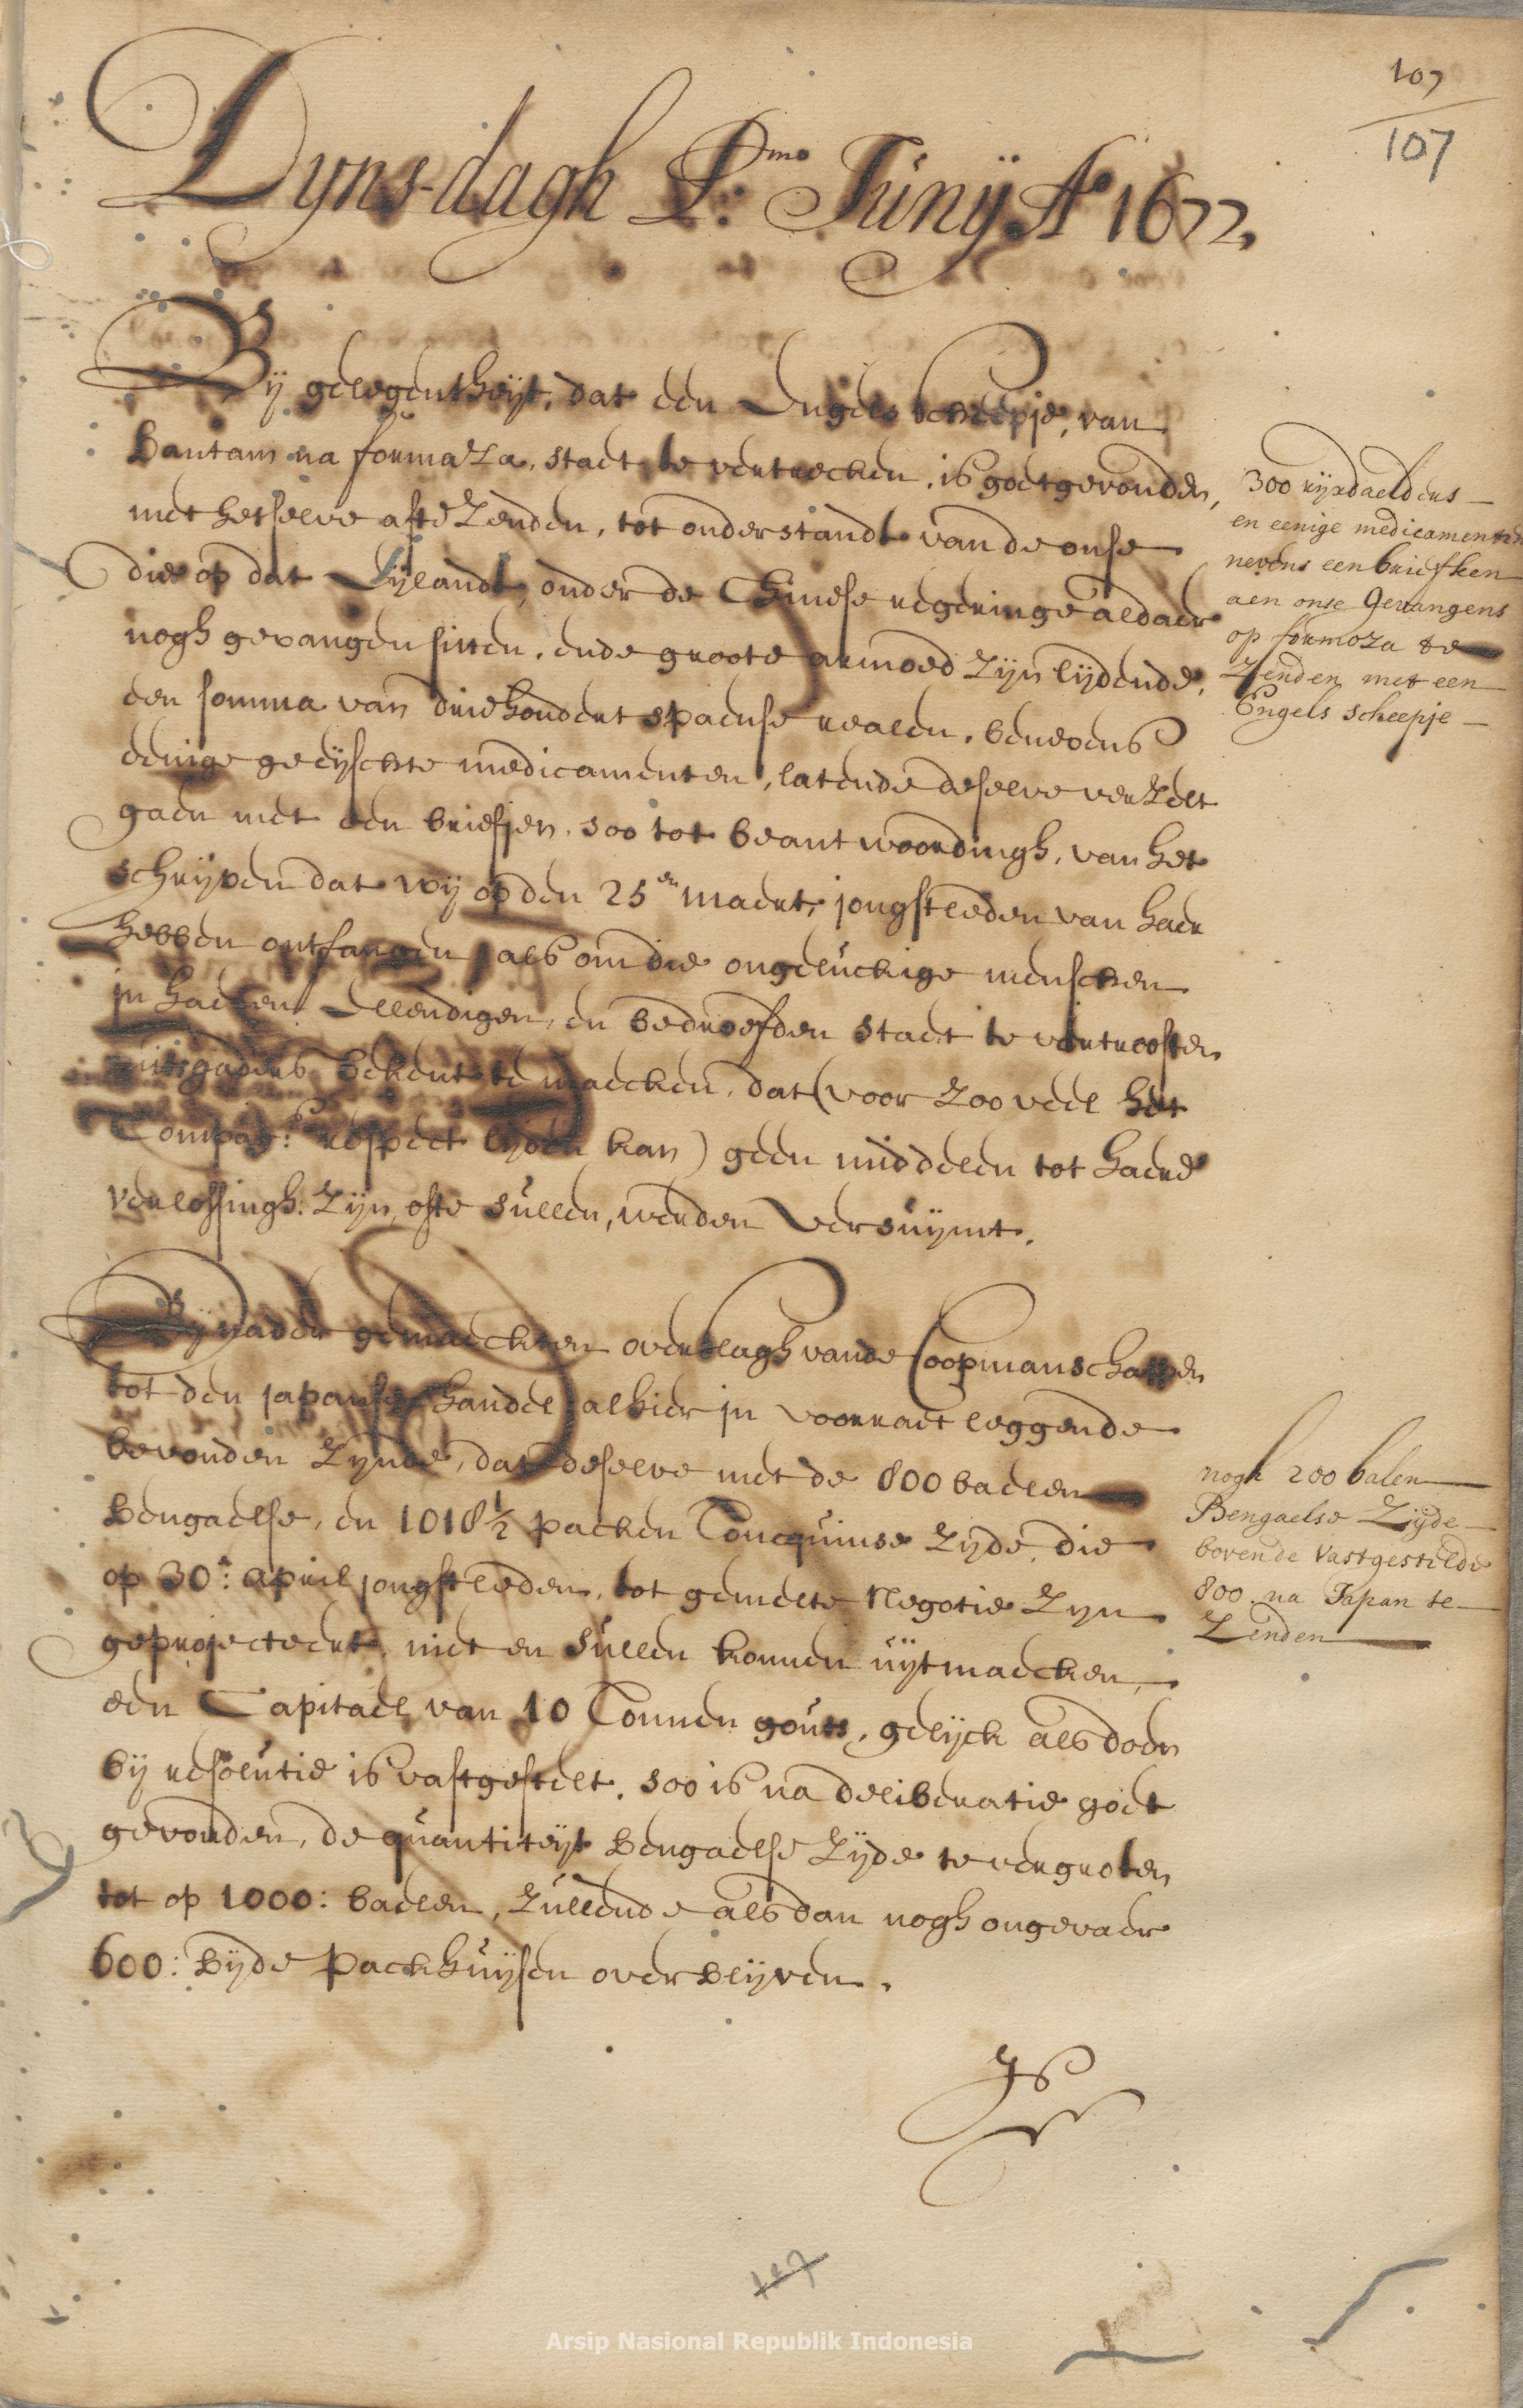 107
107
Dynsdagh P.mo Junij Ao 1672,
Bij gelegentheijt, dat een Engels scheepje, van
Bantam na formaza, staet te vertrecken, is goetgevonden,
met hetselve afte zenden, tot onderstandt van de onse
die op dat Eijlandt, onder de Chinese regeringe aldaer
nogh gevangen sitten, ende groote armoed zijn lijdende,
een somma van driehondert spaense realen, benevens
eenige geeijschte medicamenten, latende deselve verzelt
gaen met een briefjen, soo tot beantwoordingh, van het
schrijven dat wij op den 25en maert, jongstleden van haer
hebben ontfangen, als om die ongeluckige menschen
in haeren Ellendigen, en bedroefden staet te vertroosten
mitsgaders bekent te maecken, dat (voor zoo veel het
Compag: respect lijden kan) geen middelen tot haere
verlossingh. zijn, ofte sullen, werden versuijmt.
300 rijxdaelders
en eenige medicamenten
nevens een briefken
aen onse Gevangens
op formoza te
Zenden met een
Engels scheepje
Bij nader gemaeckten overslagh vande Coopmanschappen
tot den japansen handel alhier in voorraet leggende
bevonden zijnde, dat deselve met de 800 baelen
Bengaelse, en 1018½ packen Toncquinse zijde, die
op 30en: april jongstleden, tot gemelte Negotie zijn
geprojecteert, niet en sullen konnen uijtmaecken,
een Capitael van 10 Tonnen gouts, gelijck als doen
bij resolutie is vastgestelt. soo is na deliberatie goet
gevonden, de quantiteijt Bengaelse Zijde te vergroten
tot op 1000: baelen, zullende alsdan nogh ongevaer
600: bijde packhuijsen overblijven.
nogh 200 balen
Bengaelse Zijde
boven de vastgestelde
800. na Japan te
Zenden
107
Arsip Nasional Republik Indonesia